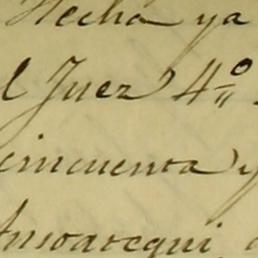 Hecha ya
el Juez 4º
cincuenta y